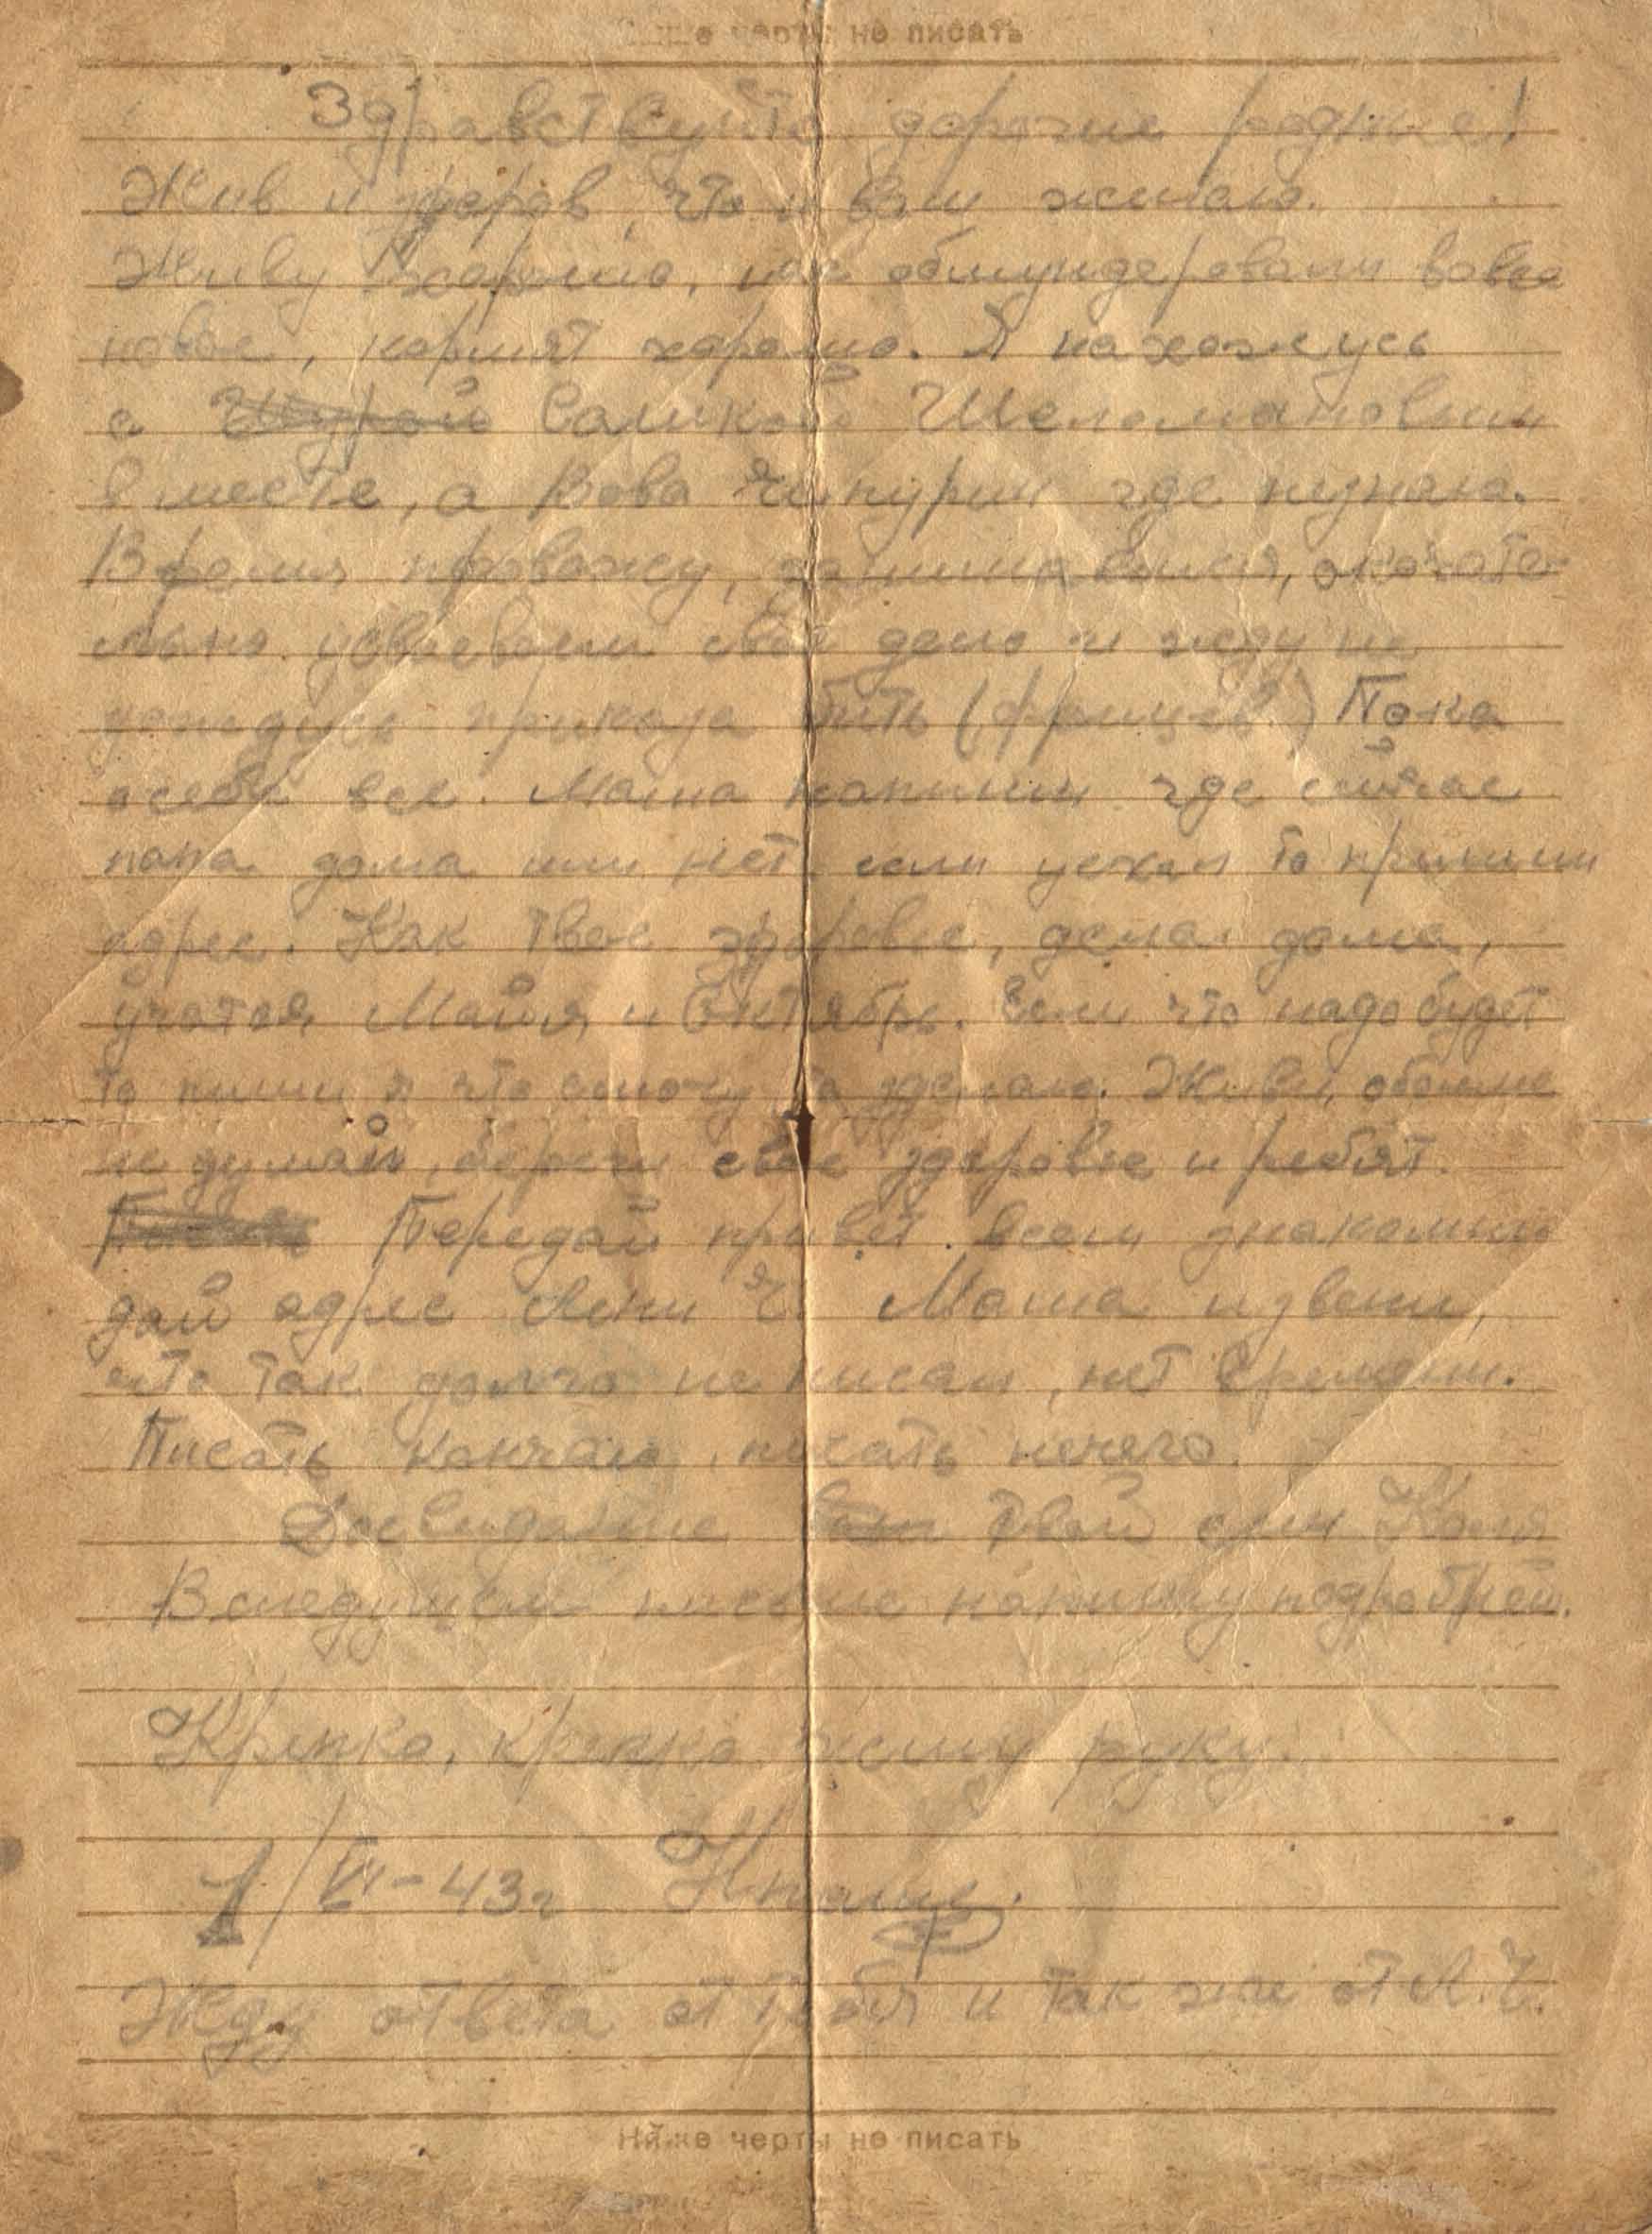 Выше черты не писать
Здравствуйте дорогие родные!
Жив и здоров, что и вам желаю.
Живу хорошо, нас обмундеровали вовсе
новое, кормят хорошо. Я нахожусь
с Шурой Сашкой Шеломановым
вместе, а Вова Чепурин где незнаю.
Время провожу, занимаемся,
усваеваем свое дело и жду не
дождусь приказа бить (фрицев) Пока
о себе все. Мама напиши где сейчас
папа дома или нет, если уехал то пришли
адрес. Как твое здоровье, дела дома,
учатся Майя и Октябрь. Если что надо будет
то пиши я что смогу то зделаю. Живи, обо мне
не думай, береги свое здоровье и ребят.
Передай привет всем знакомым
дай адрес Лени Ч. Мама извени,
что так долго не писал, нет времени.
Писать кончаю, писать нечего.
Досвидание вам Твой сын Коля
В следующем письме напишу подробней.
Крепко, крепко жму руку.
1/VI-43г
Жду ответа от Тебя и так же от Л.Ч.
Ниже черты не писать